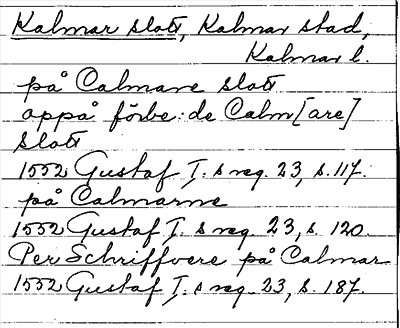 Kalmar slott, Kalmar stad,
Kalmar l.
på Calmare slott
oppå förbe:de Calm[are]
slott
1552 Gustaf I. s reg. 23, s. 117.
på Calmarne
1552 Gustaf I. s reg. 23, s. 120.
Per Schriffvere på Calmar
1552 Gustaf I. s reg. 23, s. 187.